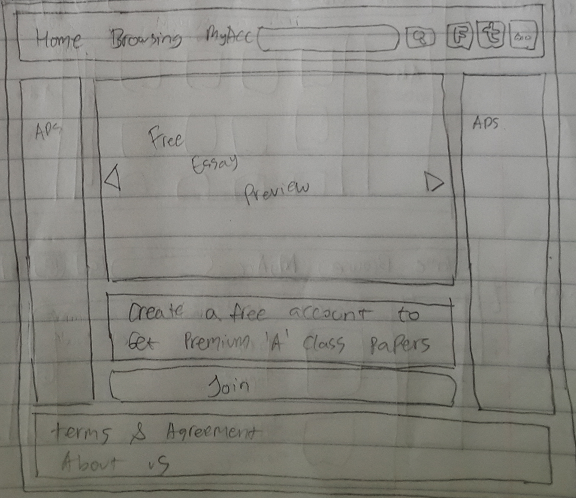 Home Browsing MyAcc
F t
ADS
Free
Essay
Preview
ADS
Create a free account to
Get Premium 'A' Class Papers
Join
Terms & Agreement
About us